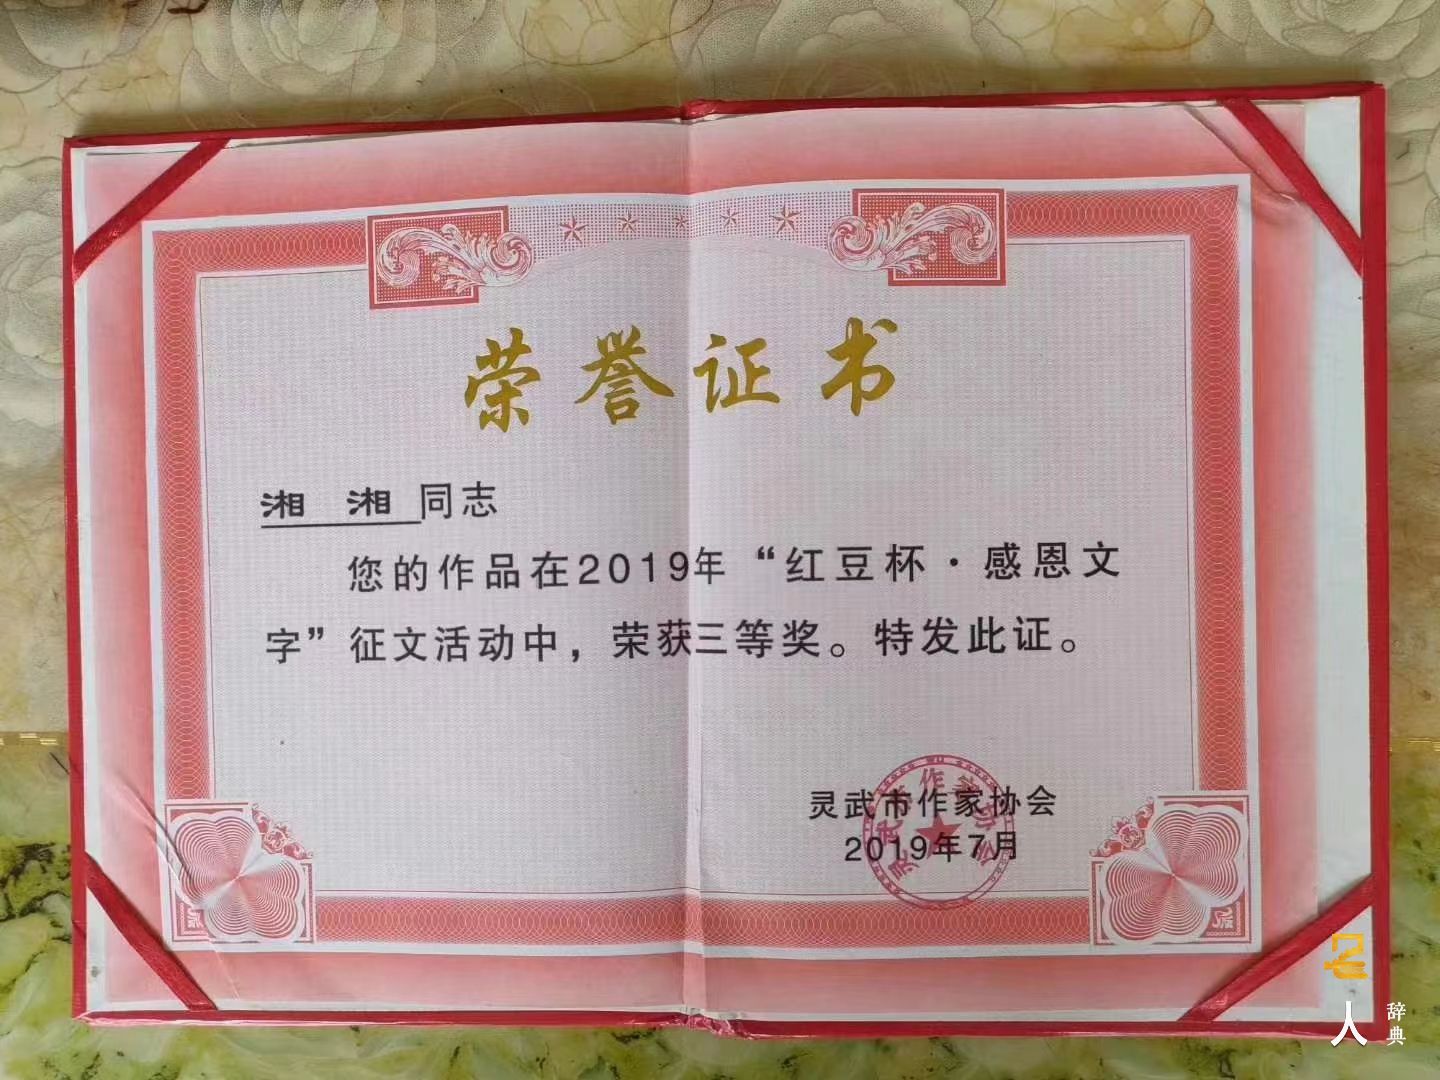 荣誉证书
湘 湘 同志
您的作品在2019年“红豆杯·感恩文
字”征文活动中，荣获三等奖。特发此证。
灵武市作家协会
2019年7月
灵武市作家协会
名人
辞典